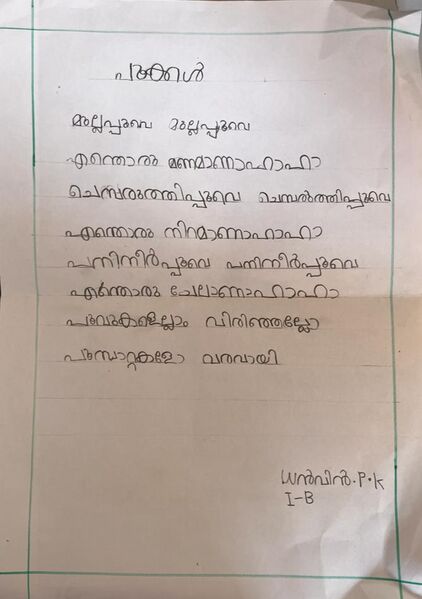 പൂക്കൾ
മുല്ലപ്പൂവെ മുല്ലപ്പൂവെ
എന്തൊരു മണമാണാഹാഹാ
ചെമ്പരുത്തിപ്പൂവെ ചെമ്പരുത്തിപ്പൂവെ
എന്തൊരു നിറമാണാഹാഹാ
പനിനീർപ്പൂവെ പനിനീർപ്പൂവെ
എന്തൊരു ചേലാണാഹാഹാ
പൂവുകളെല്ലാം വിരിഞ്ഞല്ലോ
പൂമ്പാറ്റകളോ വരവായി
ധൻവിൻ.P.K
I-B